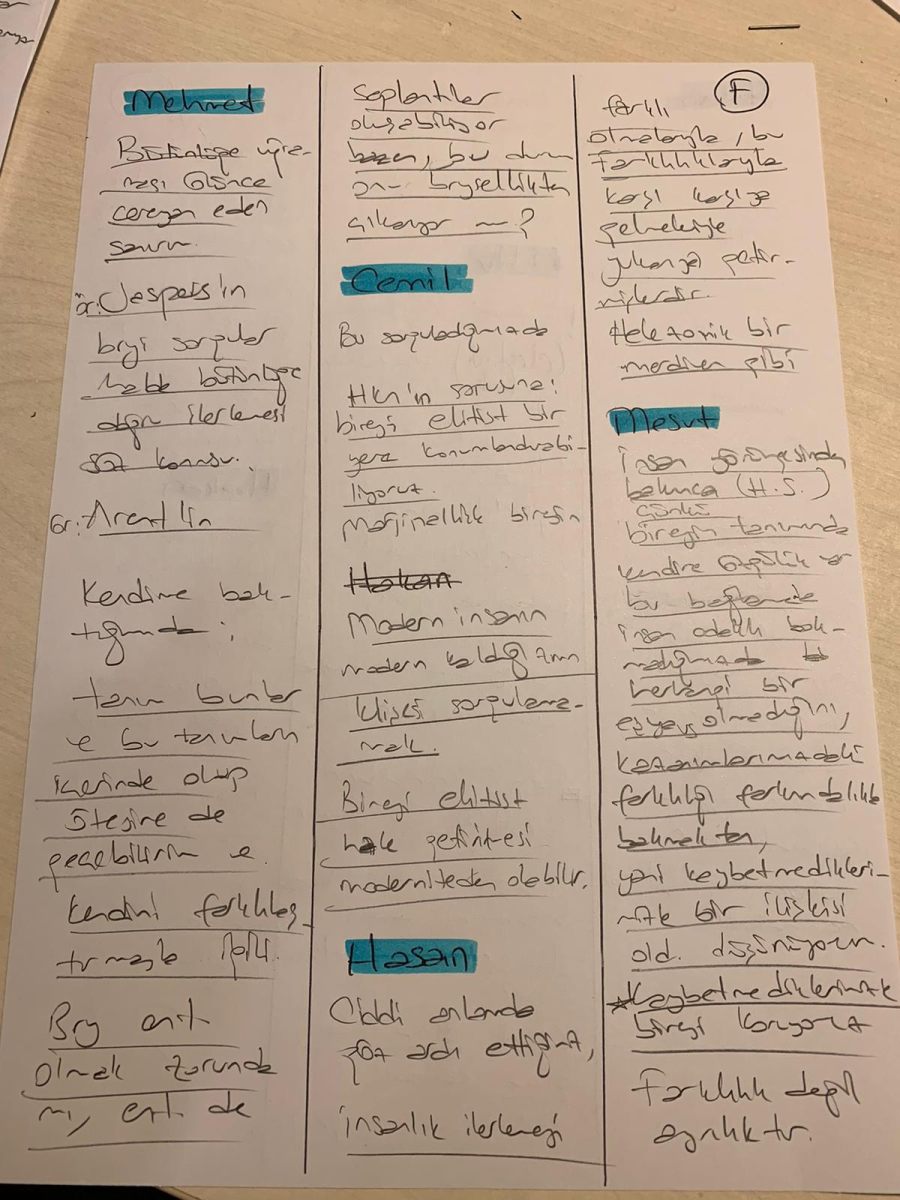 Mehmet
Bütünlüğe uğra-
ması önce
cereyan eden
sorun.
ör: Jaspers'in
bireyi sorgular
halde bütünlüğe
doğru ilerlemesi
söz konusu.
ör: Arendt'in
Kendime bak-
tığımda;
tanım bunlar
ve bu tanımların
içerisinde olup
ötesine de
geçebilirim ve
kendini farklılaş-
tırmayla ilgili.
Bry ent.
olmak zorunda
mı, ent. de
saplantılar
oluşabiliyor
bazen, bu durum
onu bireysellikten
çıkarıyor mı?
Cemil
Bu sorguladığımızda
HKn'in sorusuna:
bireyi elitist bir
yere konumlandırabi-
liyoruz.
Marjinallik bireyin
Hakan
Modern insanın
modern kaldığı anın
klişesi sorgulama-
mak.
Bireyi elitist
hale getirmesi
moderniteden olabilir.
Hasan
Ciddi anlamda
göz ardı ettiğimiz,
insanlık ilerlemeyi
F
farklı
olmalarıyla, bu
farklılıklarıyla
karşı karşıya
gelmekle
yukarıya getir-
mişlerdir.
Helezonik bir
merdiven gibi
Mesut
İnsan
bakınca (H.S.)
çünkü
bireyin tanımında
kendine özgülük var
bu bağlamda
insan odaklı bak-
madığımızda
herhangi bir
eşyayı olmadığını,
kazanımlarımızdaki
farklılığı farkındalıkla
bakmaktan,
yani kaybetmedikleri-
mizle bir ilişkisi
old. düşünüyorum.
*Kaybetmediklerimizle
bireyi koruyoruz
Farklılık değil
ayrılıktır.